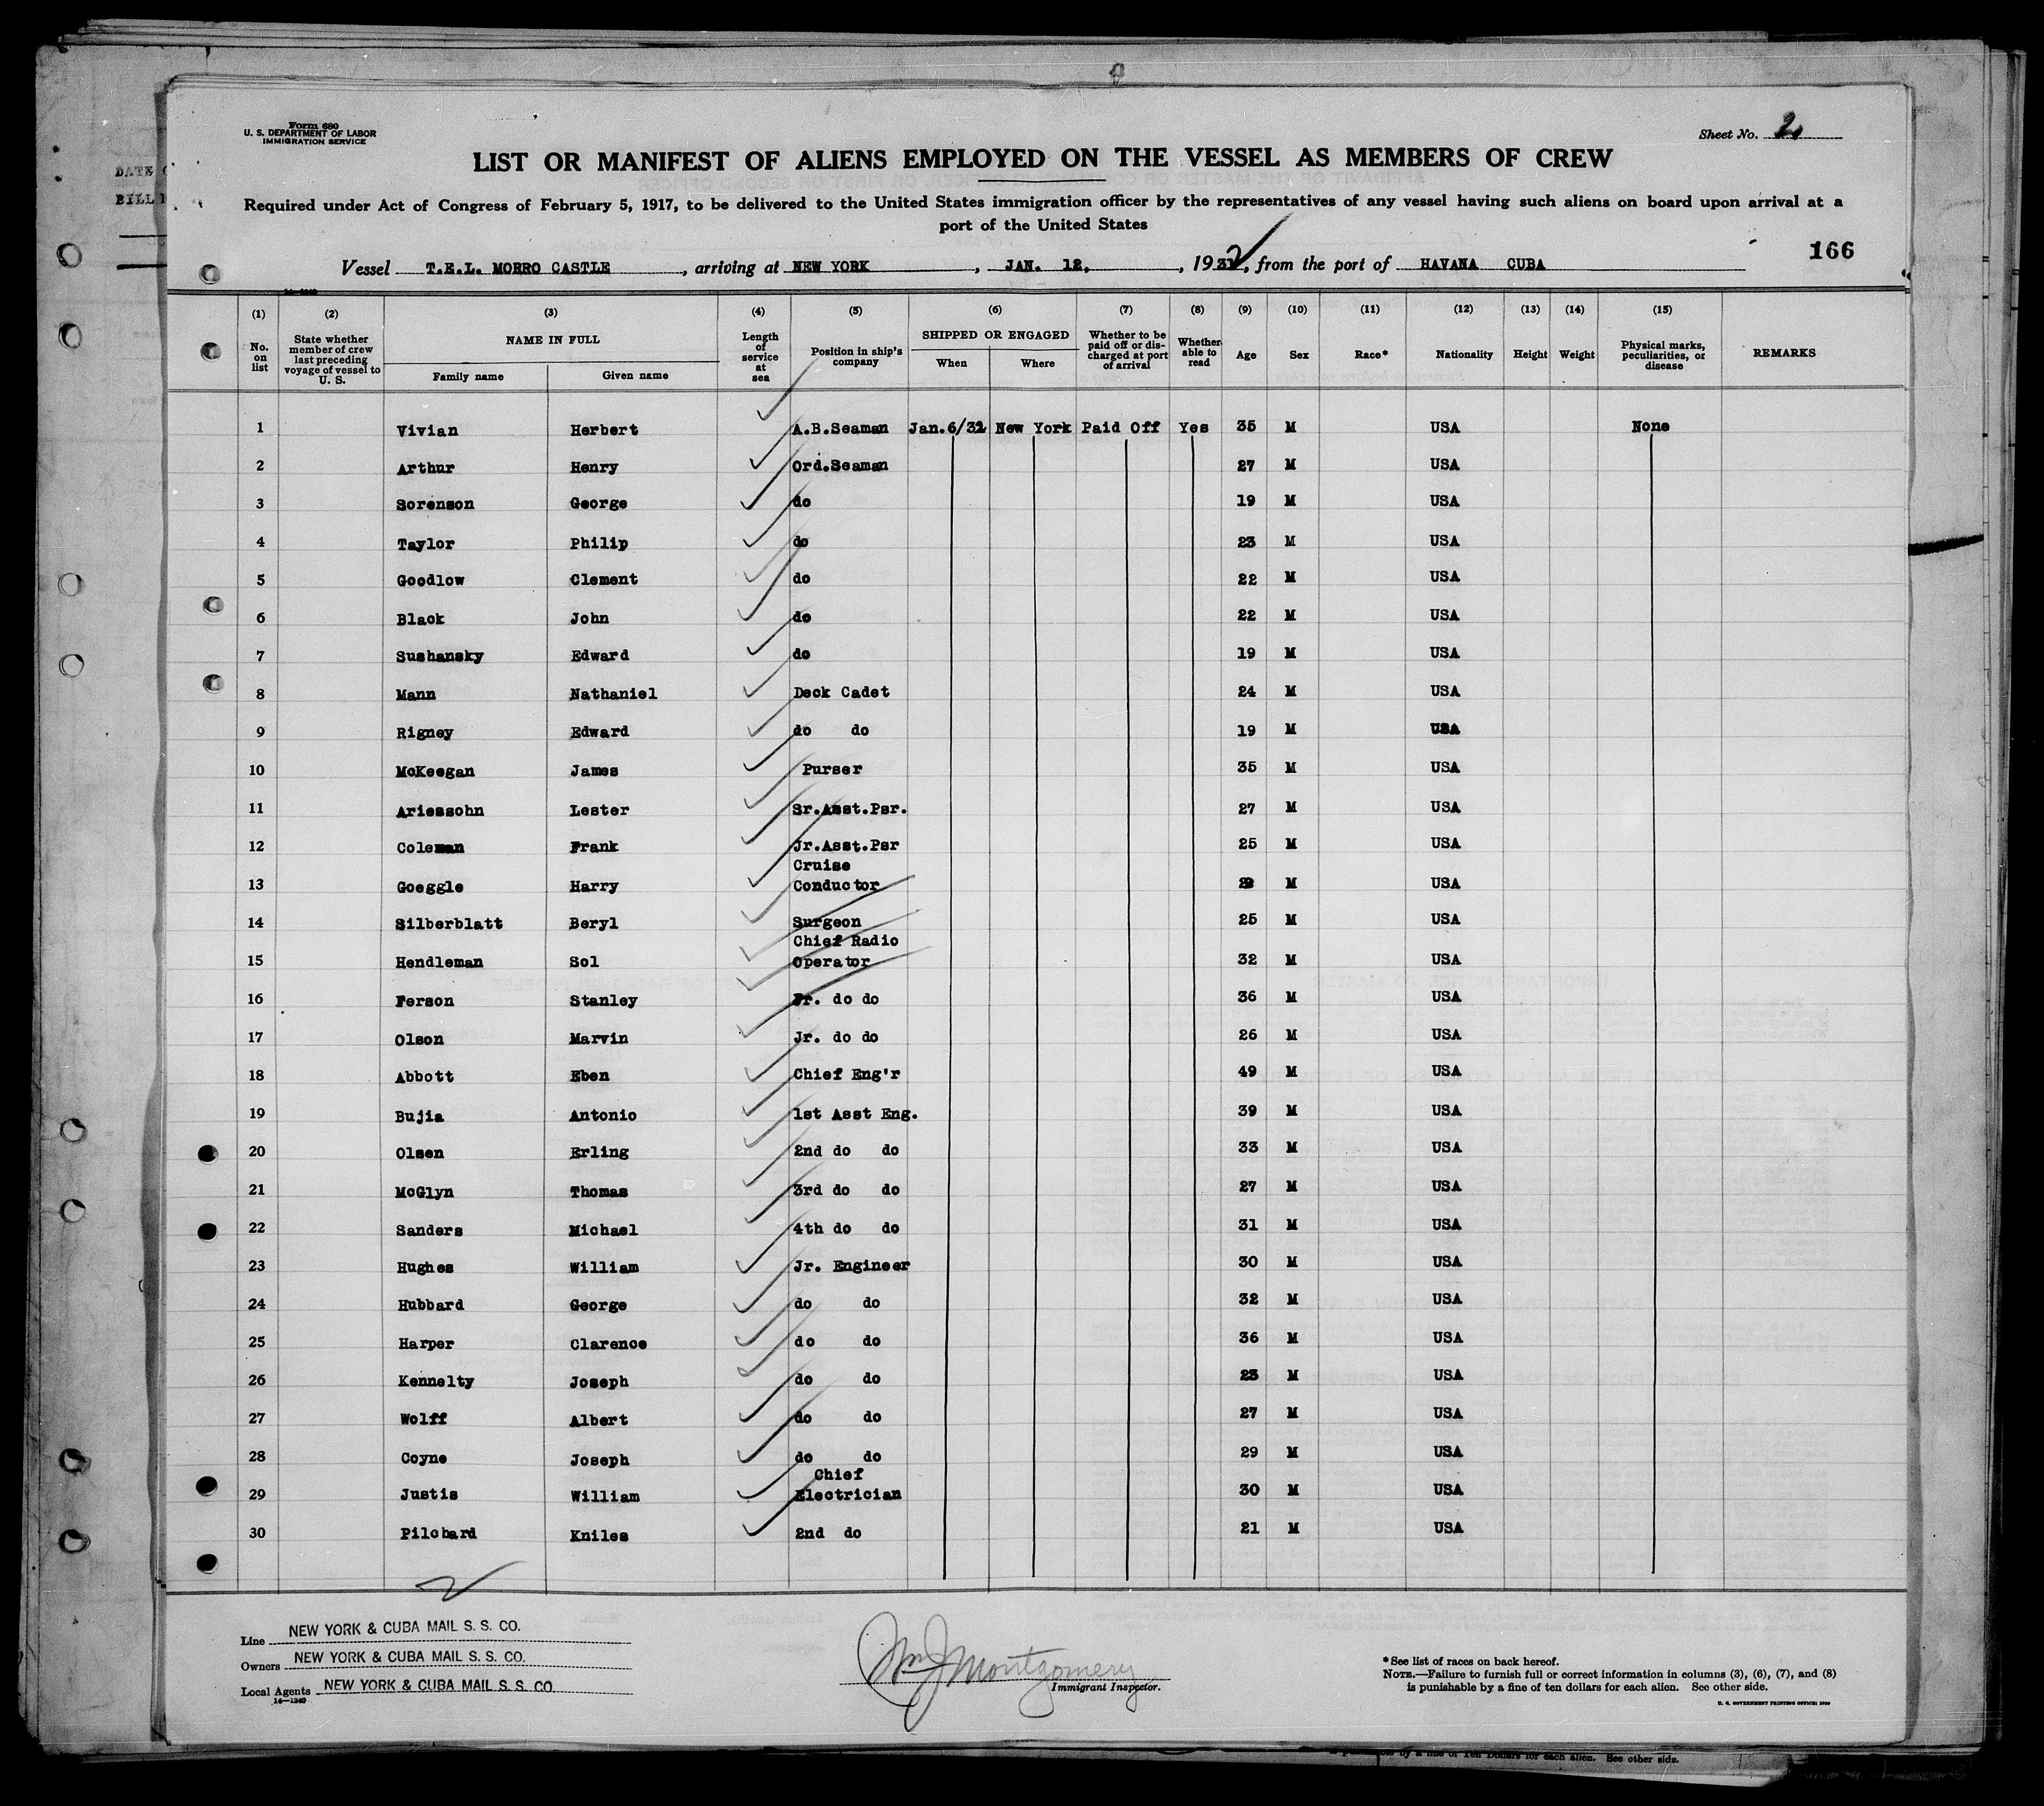 Form 680
U. S. DEPARTMENT OF LABOR
IMMIGRATION SERVICE
Sheet No. 2
LIST OR MANIFEST OF ALIENS EMPLOYED ON THE VESSEL AS MEMBERS OF CREW
Required under Act of Congress of February 5, 1917, to be delivered to the United States immigration officer by the representatives of any vessel having such aliens on board upon arrival at a
port of the United States
166
Vessel T.E.L. MORRO CASTLE, arriving at NEW YORK, JAN. 12, 1932, from the port of HAVANA CUBA
(1) (2) (3) (4) (5) (6) (7) (8) (9) (10) (11) (12) (13) (14) (15)
No. on list
State whether member of crew last preceding voyage of vessel to U. S.
NAME IN FULL
Family name Given name
Length of service at sea
Position in ship's company
SHIPPED OR ENGAGED
When Where
Whether to be paid off or discharged at port of arrival
Whether able to read
Age Sex Race* Nationality Height Weight
Physical marks, peculiarities, or disease
REMARKS
1 Vivian Herbert A.B.Seaman Jan.6/32 New York Paid Off Yes 35 M USA None
2 Arthur Henry Ord.Seaman 27 M USA
3 Sorenson George do 19 M USA
4 Taylor Philip do 23 M USA
5 Goodlow Clement do 22 M USA
6 Black John do 22 M USA
7 Sushansky Edward do 19 M USA
8 Mann Nathaniel Deck Cadet 24 M USA
9 Rigney Edward do do 19 M USA
10 McKeegan James Purser 35 M USA
11 Ariessohn Lester Sr.Asst.Psr. 27 M USA
12 Coleman Frank Jr.Asst.Psr 25 M USA
13 Goeggle Harry Cruise Conductor M USA
14 Silberblatt Beryl Surgeon 25 M USA
15 Hendleman Sol Chief Radio Operator 32 M USA
16 Ferson Stanley do do 36 M USA
17 Olson Marvin Jr. do do 26 M USA
18 Abbott Eben Chief Eng'r 49 M USA
19 Bujia Antonio 1st Asst Eng. 39 M USA
20 Olsen Erling 2nd do do 33 M USA
21 McGlyn Thomas 3rd do do 27 M USA
22 Sanders Michael 4th do do 31 M USA
23 Hughes William Jr. Engineer 30 M USA
24 Hubbard George do do 32 M USA
25 Harper Clarence do do 36 M USA
26 Kennelty Joseph do do 23 M USA
27 Wolff Albert do do 27 M USA
28 Coyne Joseph do do 29 M USA
29 Justis William Chief Electrician 30 M USA
30 Pilchard Kniles 2nd do 21 M USA
Line NEW YORK & CUBA MAIL S. S. CO.
Owners NEW YORK & CUBA MAIL S. S. CO.
Local Agents NEW YORK & CUBA MAIL S. S. CO.
14—1240
Wm J Montgomery
Immigrant Inspector.
*See list of races on back hereof.
NOTE.—Failure to furnish full or correct information in columns (3), (6), (7), and (8)
is punishable by a fine of ten dollars for each alien. See other side.